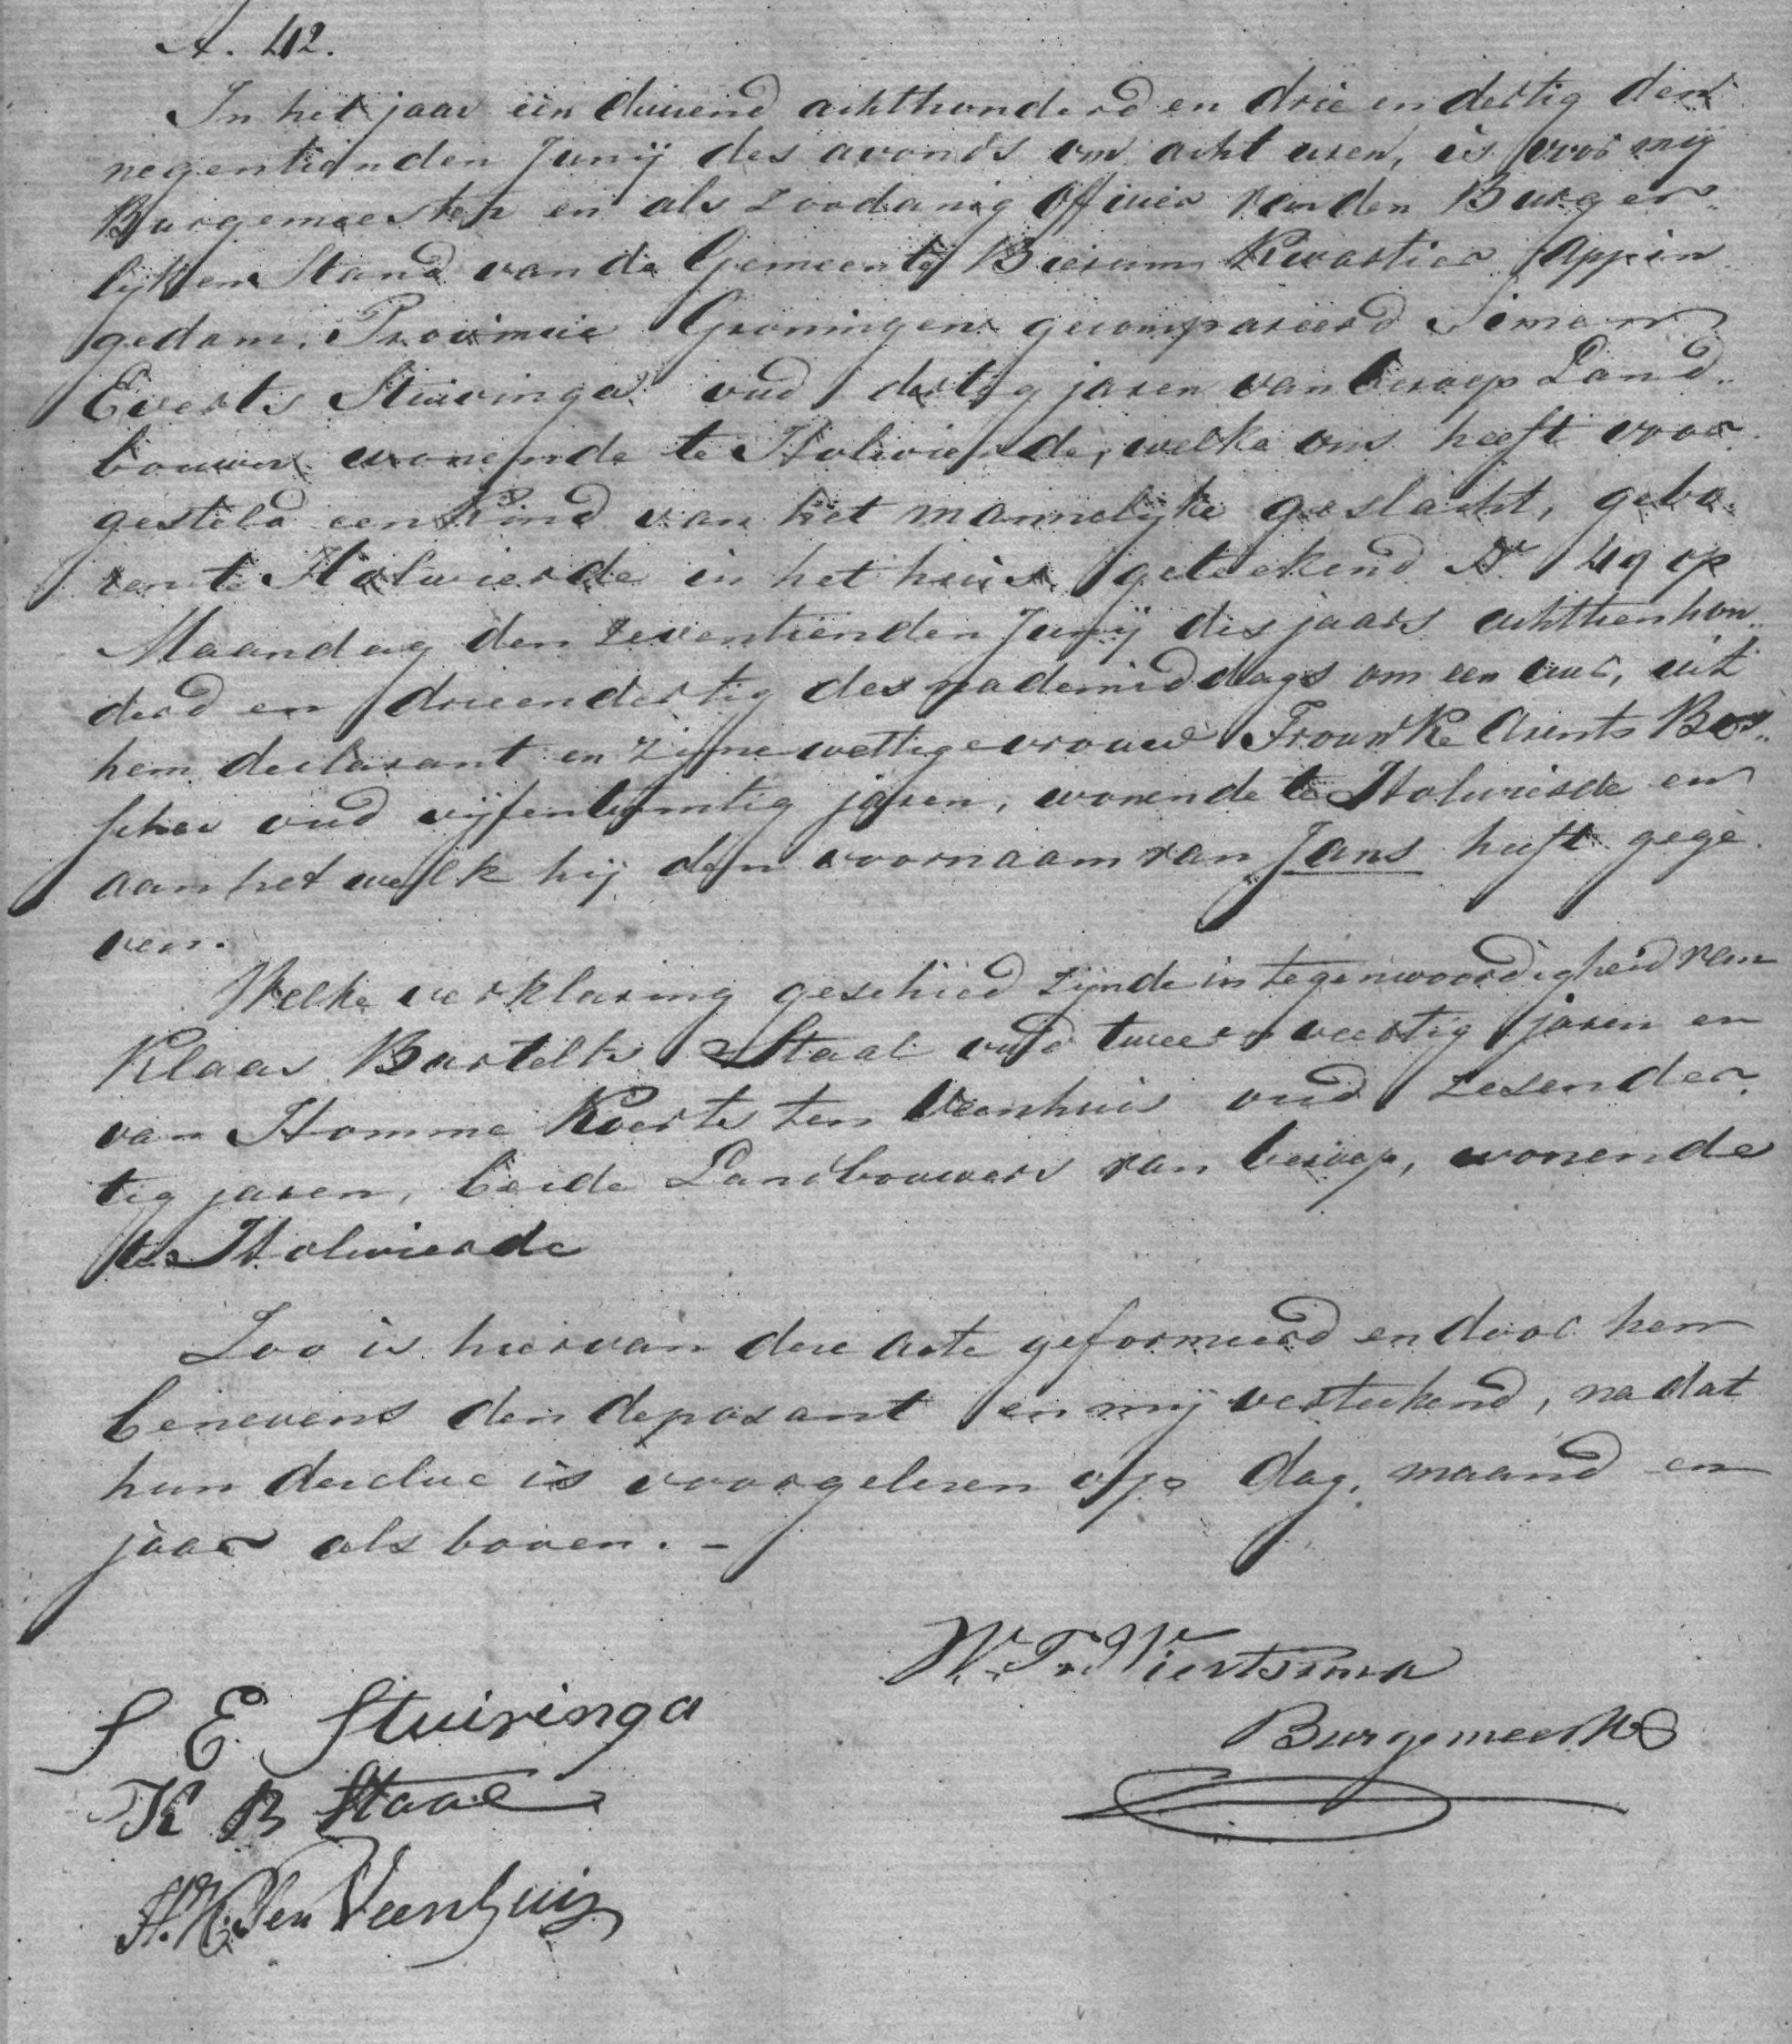 A. 42.
In het jaar één duizend achthonderd en drie en dertig den
negentienden Junij des avonds om acht uren, is voor mij
Burgemeester en als zoodanig officier van den Burger-
lijken Stand van de Gemeente Bierum Kwartier Appin
gedam, Provincie Groningen gecompareerd Simon
Everts Stuivinga oud dertig jaren van beroep Land-
bouwer wonende te Holwierde, welke ons heeft voor
gesteld een kind van het mannelijke geslacht, gebo
ren te Holwierde in het huis geteekend Nr 49 op
Maandag den zeventienden Junij des jaars achttienhon-
derd en drieendertig des nademiddags om een uur, uit
hem declarant en zijne wettige vrouw Frouwke Arents Bos-
scher oud vijfentwintig jaren, wonende te Holwierde en
aan het welk hij den voornaam van Jans heeft gege
ven.
Welke verklaring geschied zijnde in tegenwoordigheid van
Klaas Bartelts Staal oud twee en veertig jaren en
van Homme Koerts ten Veenhuis oud zesender
tig jaren, beide Landbouwers van beroep, wonende
te Holwierde
Zoo is hiervan deze acte geformeerd en door hen
benevens den deposant en mij verteekend, na dat
hun dezelve is voorgelezen op dag, maand en
jaar als boven. -
W. T. Wiertsema
Burgemeester
S E Stuiringa
K B Staal
H. K. Ten Veenhuis